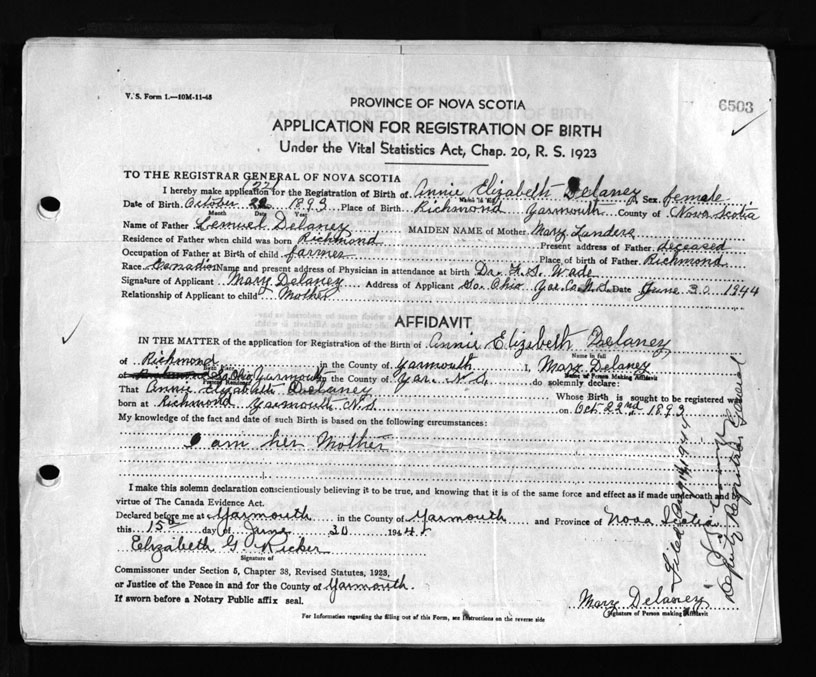 V. S. Form 1.—10M-11-43
6503
PROVINCE OF NOVA SCOTIA
APPLICATION FOR REGISTRATION OF BIRTH
Under the Vital Statistics Act, Chap. 20, R. S. 1923
TO THE REGISTRAR GENERAL OF NOVA SCOTIA
I hereby make application for the Registration of Birth of Annie Elizabeth Delaney Sex female
Date of Birth October 22 1893 Place of Birth Richmond Yarmouth County of Nova Scotia
Month Date Year
Name of Father Lemuel Delaney MAIDEN NAME of Mother Mary Landers
Residence of Father when child was born Richmond Present address of Father deceased
Occupation of Father at Birth of child farmer Place of birth of Father Richmond
Race Canadian Name and present address of Physician in attendance at birth Dr. Wade
Signature of Applicant Mary Delaney Address of Applicant So. Ohio Yar. Co. N.S. Date June 30 1944
Relationship of Applicant to child Mother
AFFIDAVIT
IN THE MATTER of the application for Registration of the Birth of Annie Elizabeth Delaney
Name in full
of Richmond in the County of Yarmouth I, Mary Delaney
Name of Person Making Affidavit
of So. Ohio Yarmouth in the County of Yar. N.S. do solemnly declare:
That Annie Elizabeth Delaney Whose Birth is sought to be registered was
born at Richmond Yarmouth N.S. on Oct 22nd 1893
My knowledge of the fact and date of such Birth is based on the following circumstances:
I am her Mother
I make this solemn declaration conscientiously believing it to be true, and knowing that it is of the same force and effect as if made under oath and by
virtue of The Canada Evidence Act.
Declared before me at Yarmouth in the County of Yarmouth and Province of Nova Scotia
this 15th day of June 30 1944
Elizabeth G. Ricker
Signature of
Commissioner under Section 5, Chapter 38, Revised Statutes, 1923,
or Justice of the Peace in and for the County of Yarmouth.
If sworn before a Notary Public affix seal.
Mary Delaney
Signature of Person making Affidavit
For Information regarding the filling out of this Form, see Instructions on the reverse side
Deputy Registrar General